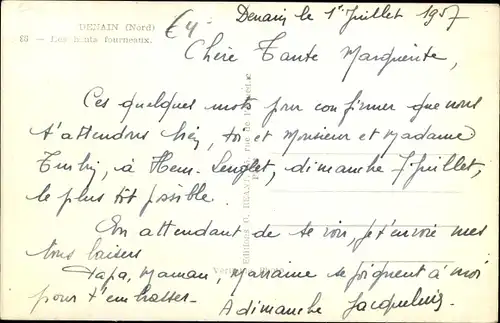 DENAIN (Nord)
86 — Les hauts fourneaux.
€4
Denain le 1er Juillet 1957
Chère Tante Marguerite,
Ces quelques mots pour confirmer que nous
t'attendons bien, toi et Monsieur et Madame
à Hem-Lenglet, dimanche 7 Juillet,
le plus tôt possible.
En attendant de te voir, je t'envoie mes
bons baisers
Papa, Maman, Marraine se joignent à moi
pour t'embrasser. A dimanche Jacqueline.
Editions